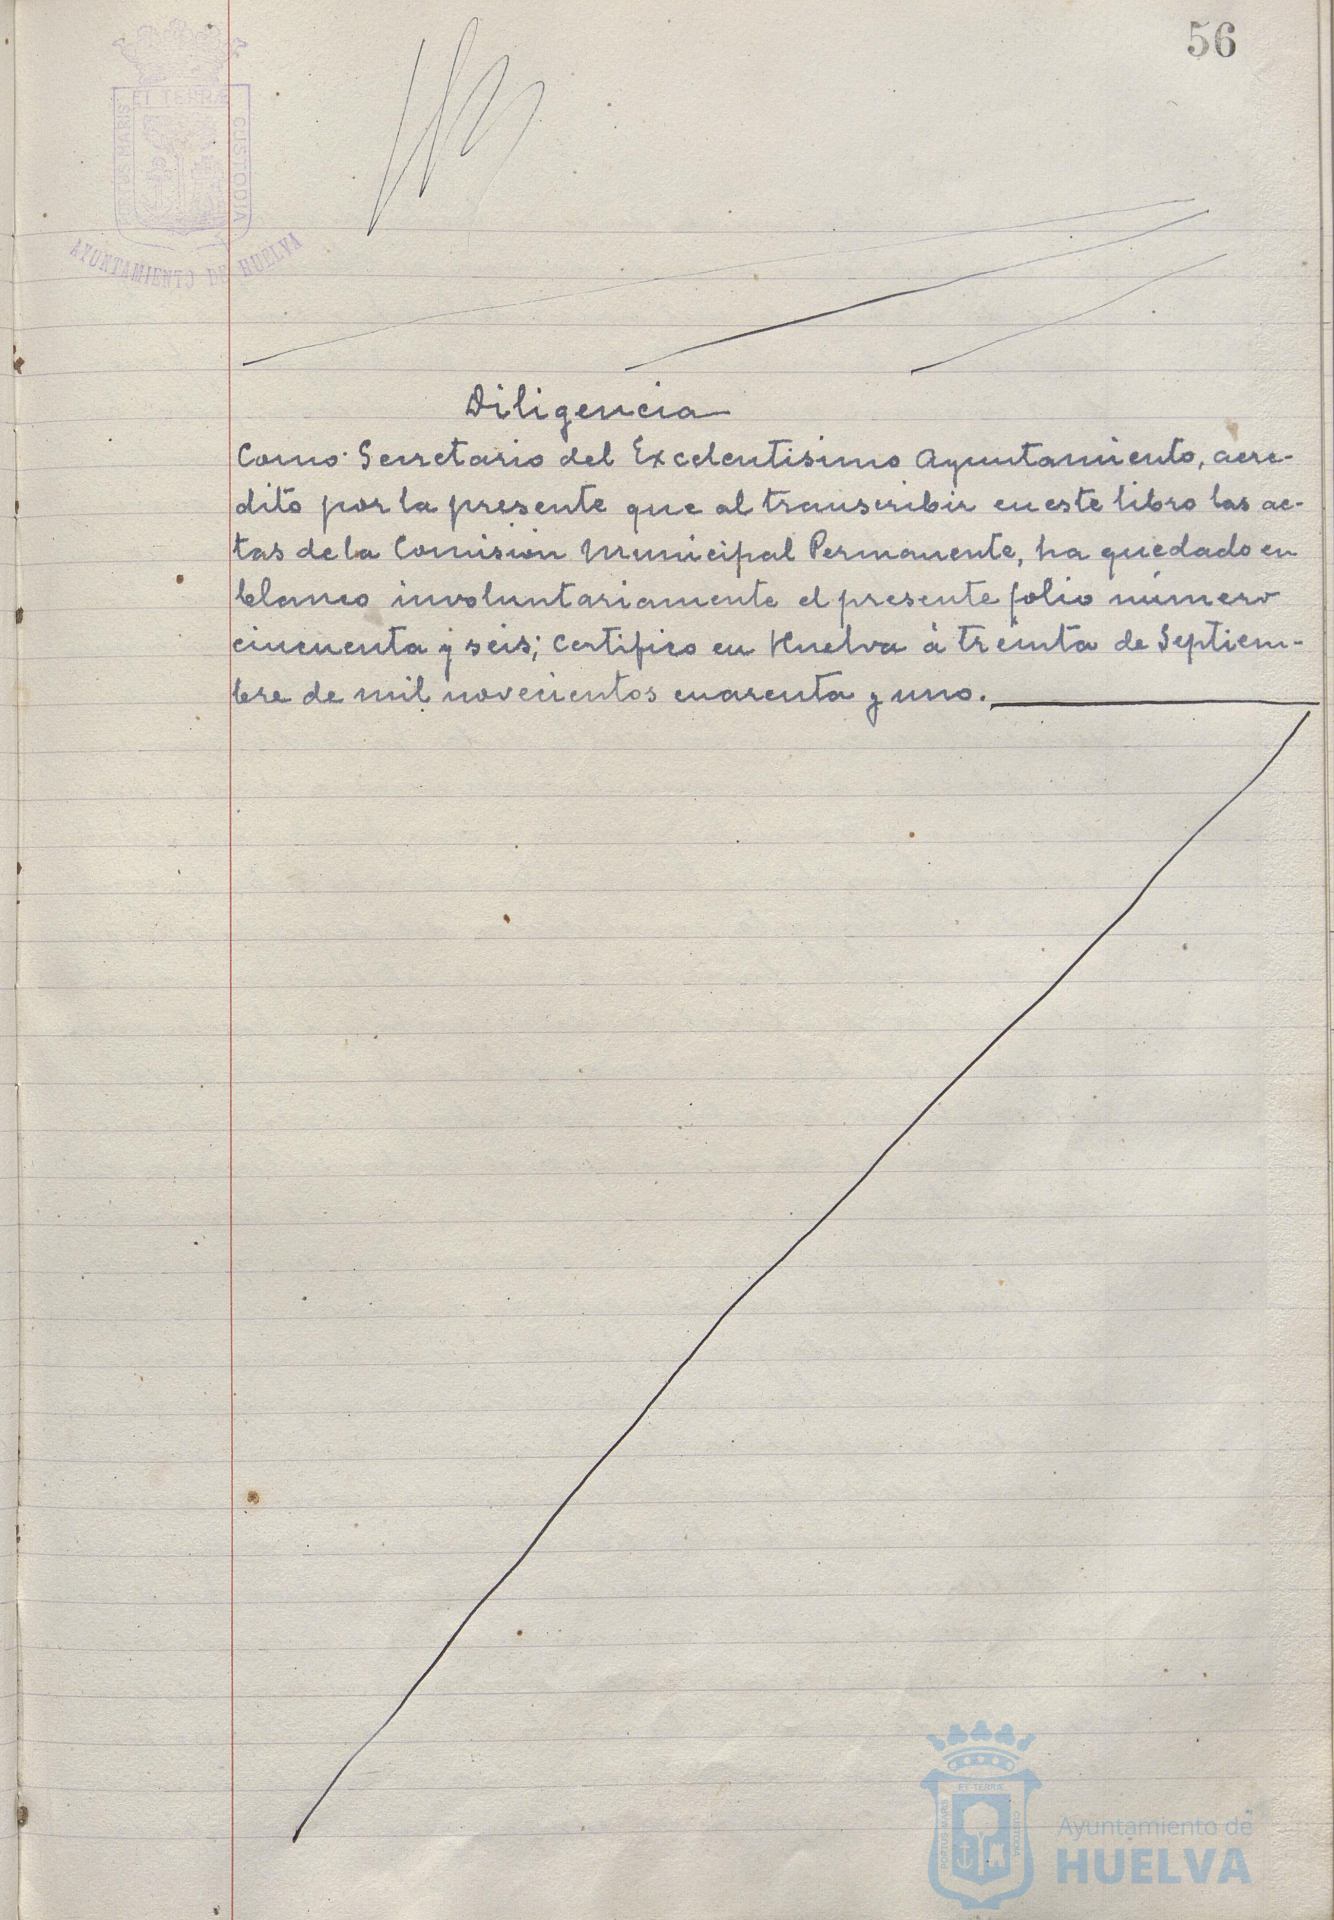 56
ET TERRÆ
PORTUS MARIS
CUSTODIA
AYUNTAMIENTO DE HUELVA
Diligencia
Como Secretario del Excelentisimo Ayuntamiento, acre-
dito por la presente que al transcribir en este libro las ac-
tas de la Comision Municipal Permanente, ha quedado en
blanco involuntariamente el presente folio número
cincuenta y seis; certifico en Huelva à treinta de Septiem-
bre de mil novecientos cuarenta y uno.
ET TERRÆ
PORTUS MARIS
CUSTODIA
Ayuntamiento de
HUELVA